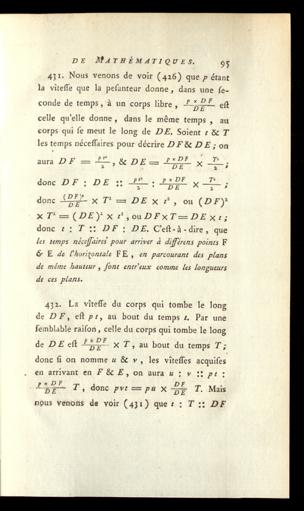 DE MATHÉMATIQUES. 95
431. Nous venons de voir (426) que p étant
la vîtesse que la pesanteur donne, dans une se-
conde de temps, à un corps libre, \frac{p × DF}{DE} est
celle qu'elle donne, dans le même temps, au
corps qui se meut le long de DE. Soient t & T
les temps nécessaires pour décrire DF & DE; on
aura DF = \frac{pt²}{2}, & DE = \frac{p × DF}{DE} × \frac{T²}{2};
donc DF : DE :: \frac{pt²}{2} : \frac{p × DF}{DE} × \frac{T²}{2};
donc \frac{(DF)²}{DE} × T² = DE × t², ou (DF)²
× T² = (DE)² × t², ou DF × T = DE × t;
donc t : T :: DF : DE. C'est-à-dire, que
les temps nécessaires pour arriver à différens points F
& E de l'horizontale FE, en parcourant des plans
de même hauteur, sont entr'eux comme les longueurs
de ces plans.
432. La vîtesse du corps qui tombe le long
de DF, est pt, au bout du temps t. Par une
semblable raison, celle du corps qui tombe le long
de DE est \frac{p × DF}{DE} × T, au bout du temps T;
donc si on nomme u & v, les vîtesses acquises
en arrivant en F & E, on aura u : v :: pt :
\frac{p × DF}{DE} T, donc pvt = pu × \frac{DF}{DE} T. Mais
nous venons de voir (431) que t : T :: DF